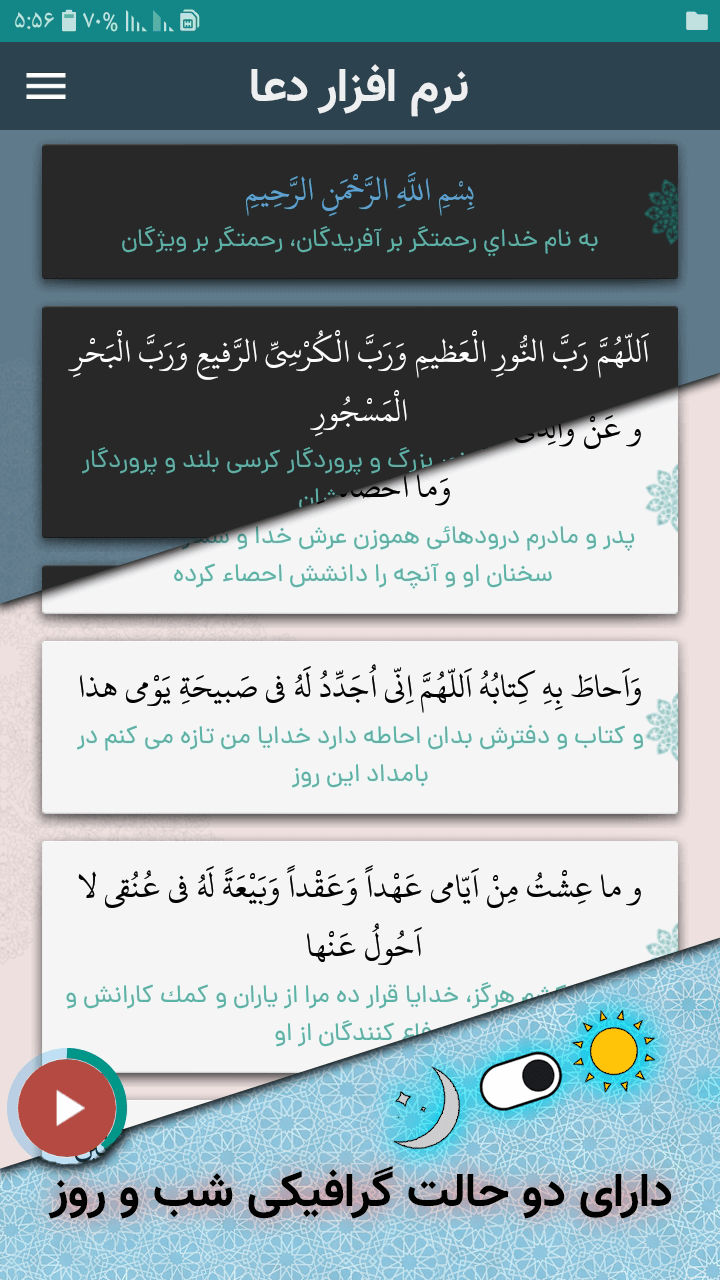 ۵:۵۶ ۷۰%
نرم افزار دعا
بِسْمِ اللَّهِ الرَّحْمَنِ الرَّحِيمِ
به نام خداي رحمتگر بر آفريدگان، رحمتگر بر ويژگان
اَللّهُمَّ رَبَّ النُّورِ الْعَظيمِ وَرَبَّ الْكُرْسِيِّ الرَّفيعِ وَرَبَّ الْبَحْرِ
الْمَسْجُورِ
و عَنْ والِدَىَّ
بزرگ و پروردگار کرسی بلند و پروردگار
وَما اَحْصاهُ
پدر و مادرم درودهائی هموزن عرش خدا و
سخنان او و آنچه را دانشش احصاء کرده
وَاَحاطَ بِهِ كِتابُهُ اَللّهُمَّ اِنّى اُجَدِّدُ لَهُ فى صَبيحَةِ يَوْمى هذا
و کتاب و دفترش بدان احاطه دارد خدایا من تازه می کنم در
بامداد این روز
و ما عِشْتُ مِنْ اَيّامى عَهْداً وَعَقْداً وَبَيْعَةً لَهُ فى عُنُقى لا
اَحُولُ عَنْها
هرگز، خدایا قرار ده مرا از یاران و کمك کارانش و
کنندگان از او
دارای دو حالت گرافیکی شب و روز